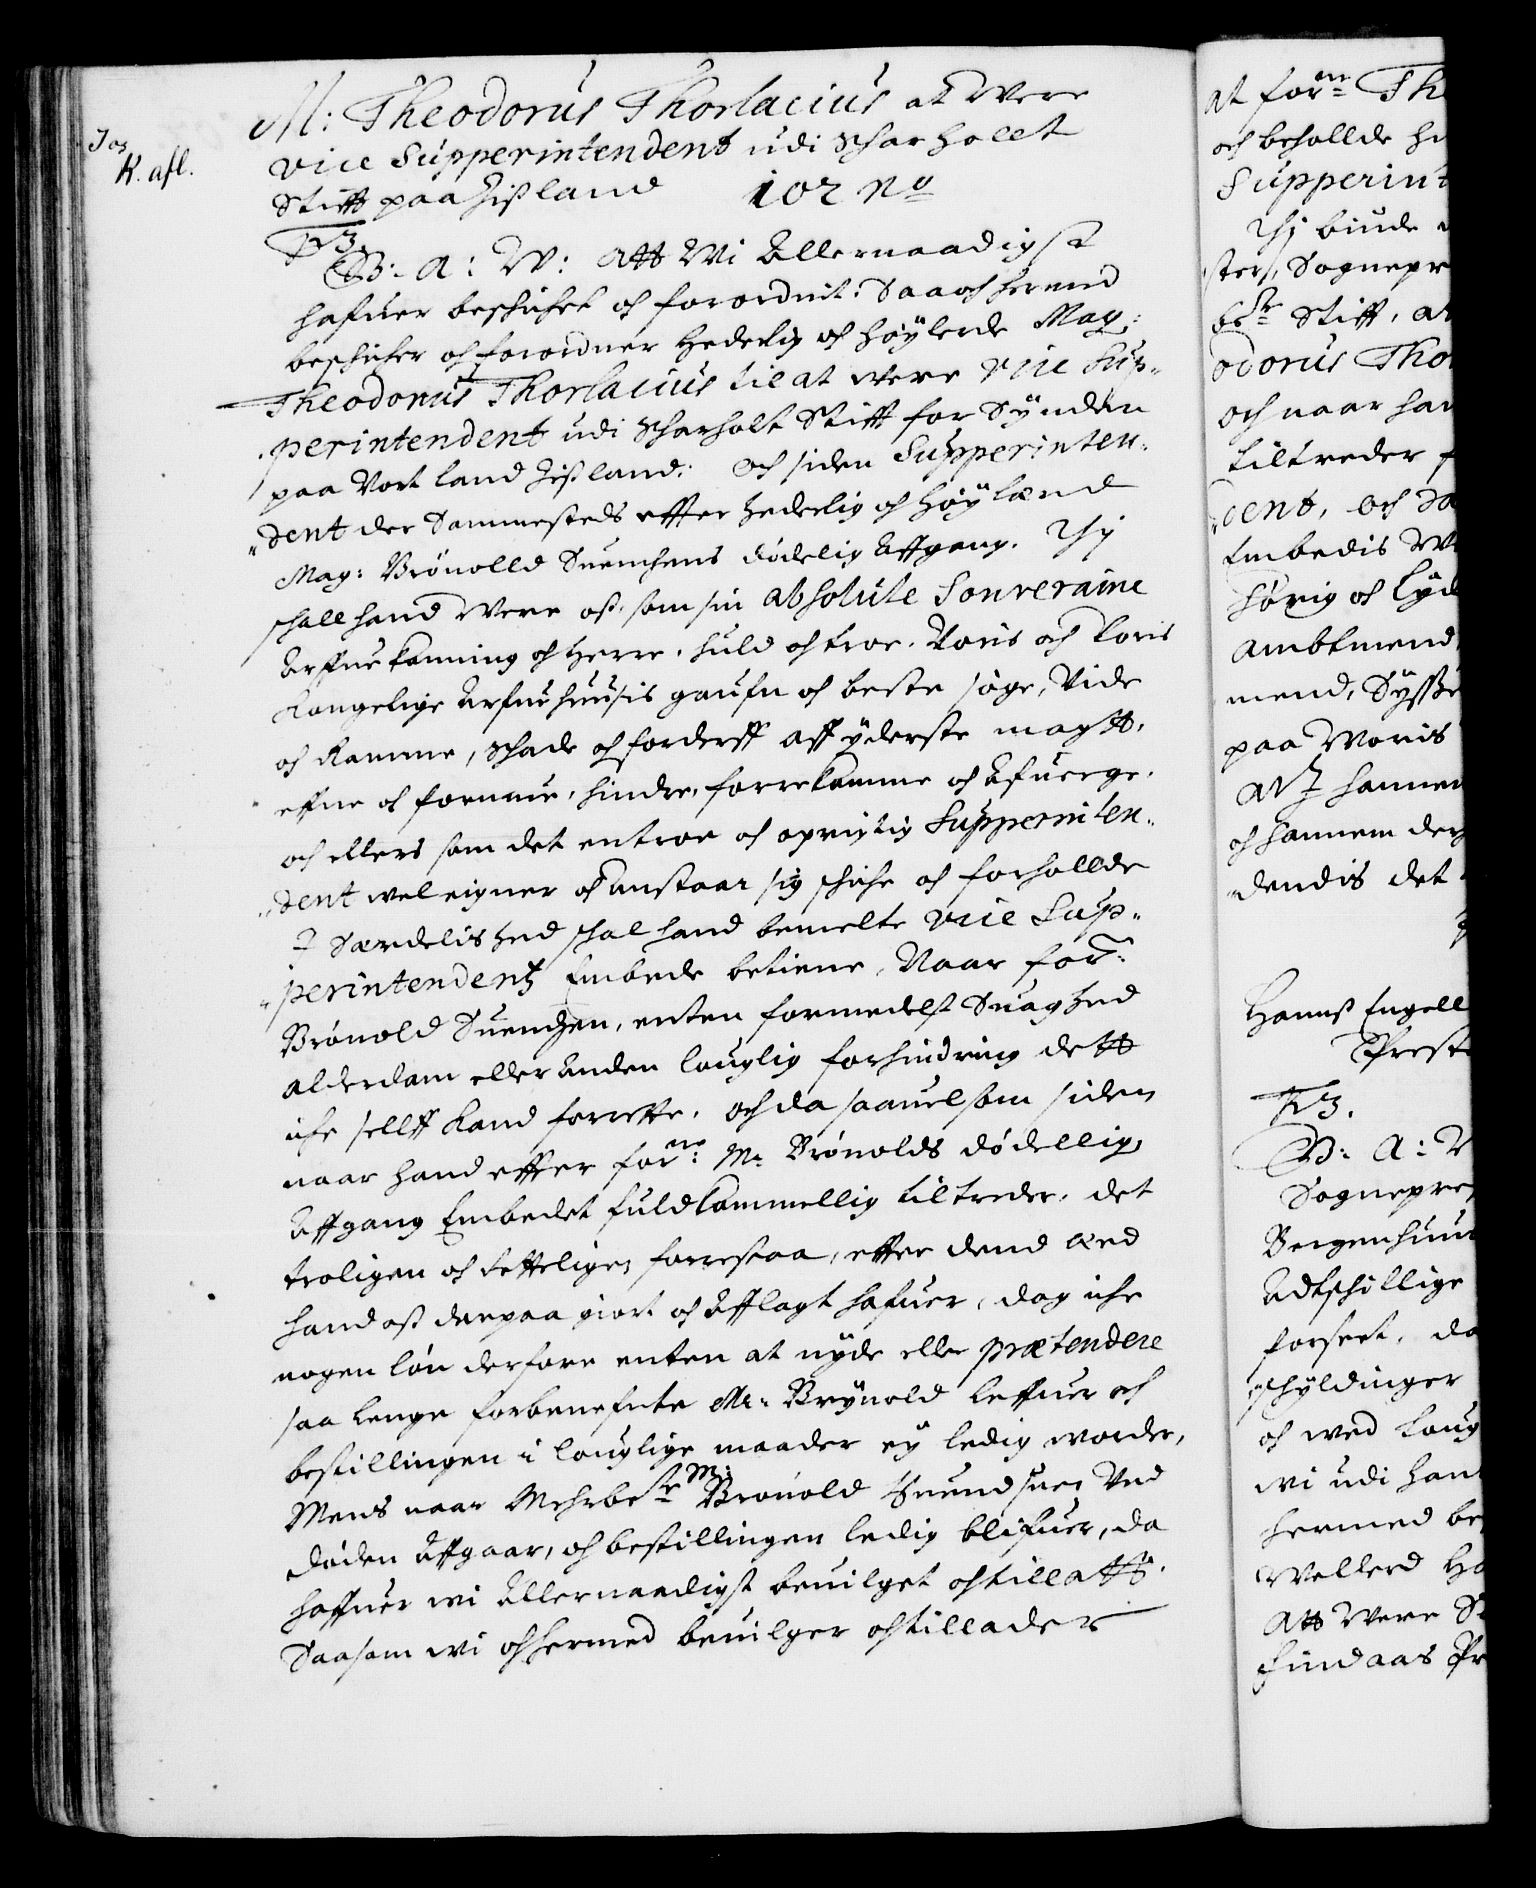 M: Theodorus Thorlacius at Were
Vice Supperintendent udi Scharhollt
Stifft paa Ißland 102 No
K. afl.
F3.
G: A: W: Att Wi Allernaadigst
hafuer beschichet och forordnit: Saa och hermed
beschicher och forordner Hederlig och Høylerde Mag:
Theodorus Thorlacius til at were Vice Sup-
perintendent udi Scharholt Stifft for Synden
paa Vort land Ißland: Och siden Supperinten-
dent der Sammesteds effter hederlig och Høylærd
Mag: Brónolld Suenchens dødelig Affgang. Thj
schall hand Were oß, som sin absolute Souveraine
Arffue Konning och Herre, huld och troe. Voris och Voris
Kongelige Arfue huusis gaufn och beste søge, Vide
och Ramme, Schade och forderff aff yderste magt,
effne och formue, hindre, forrekomme och Afuerge.
och ellers som det en troe och oprigtig Supperinten-
dent vel eigner och anstaar sig schiche och forhollde
J Særdelished schal hand bemelte Vice Sup-
perintendentz Embede betiene, Naar forne:
Brónold Suendzen, enten formedelst Suaghed
Alderdom eller Anden louglig forhindring dett
iche sellff kand forrette, och da saauelsom siden
naar hand effter forne: M: Brónolds dødellig
Affgang Embedet fuldkommellig tiltreder, det
troligen och rettelig forrestaa, effter dend æed
hand oß derpaa giort och Afflagt hafuer, dog iche
nogen løn derfore enten at nyde eller prætendere
saa lenge forbenefnte Mr: Brynold leffuer och
bestillingen i louglige maader ey ledig worder,
Mens naar Mehrbete M: Brónold Suendsen Ved
døden Affgaar, och bestillingen ledig blifuer, da
haffuer wi Allernaadigst beuilget och tilladt.
Saasom wi och hermed beuilger och tillader
at forne The
och behollde
Supperint
Thj biude
ster, Sognepre
bete Stifft, at
odorus Tho
och naar han
tiltreder
dent, och
Embedis
hørig och lyd
Ambtmend
mend, Sysse
paa Woris
hannem
och hannem der
dendis det
Hannß Engell
Prest
F3.
G: A: W
Sognepre
Bergenhuus
Adtschillige
forseet, da
schyldinger
och wed loug
wi udi han
hermed be
Wellerd
Att Were
Findaas Pr